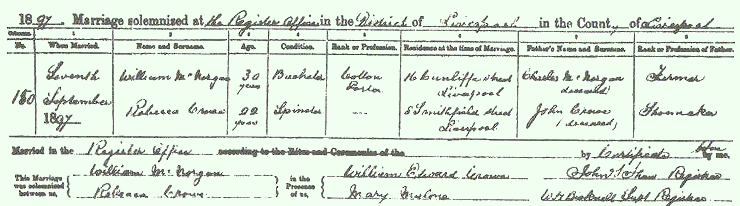 1897. Marriage solemnised at the Register Office in the District of Liverpool in the County of Liverpool
Columns:— 1 2 3 4 5 6 7 8
No. When Married. Name and Surname. Age. Condition. Rank or Profession. Residence at the time of Marriage. Father's Name and Surname. Rank or Profession of Father.
Seventh William McNorgan 30 years Bachelor Cotton Porter 16 Cunliffe Street Liverpool Charles McNorgan (deceased) Farmer
150 September
1897 Rebecca Crowe 22 years Spinster — 8 Smithfield Street Liverpool John Crowe (deceased) Shoemaker
Married in the Register Office according to the Rites and Ceremonies of the by Certificate before by me,
This Marriage was solemnised between us, William McNorgan Rebecca Crowe in the Presence of us, William Edward Mary Malone John Shaw Registrar Supt Registrar